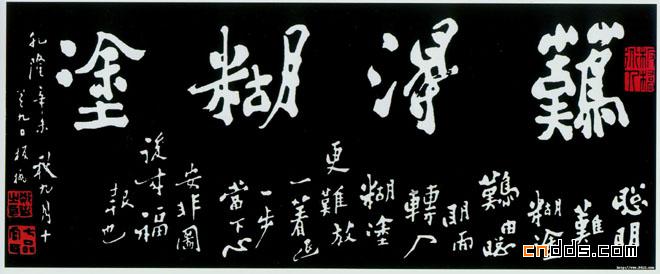 難得糊塗
聰明
難
糊塗
難由聰
明而
轉入
糊塗
更難放
一著退
一步
當下心
安非圖
後來福
報也
乾隆辛未秋九月十
九日板橋
cndds.com